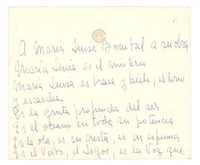 A María Luisa Bombal a su obra
María Luisa es el misterio
María Luisa es brasa y hielo, es lirio
y escarcha.
Es la gruta profunda del ser
es el océano en toda su potencia
es la ola, es su cresta, es su espuma
Es el Verbo, el Logos, es la Voz que